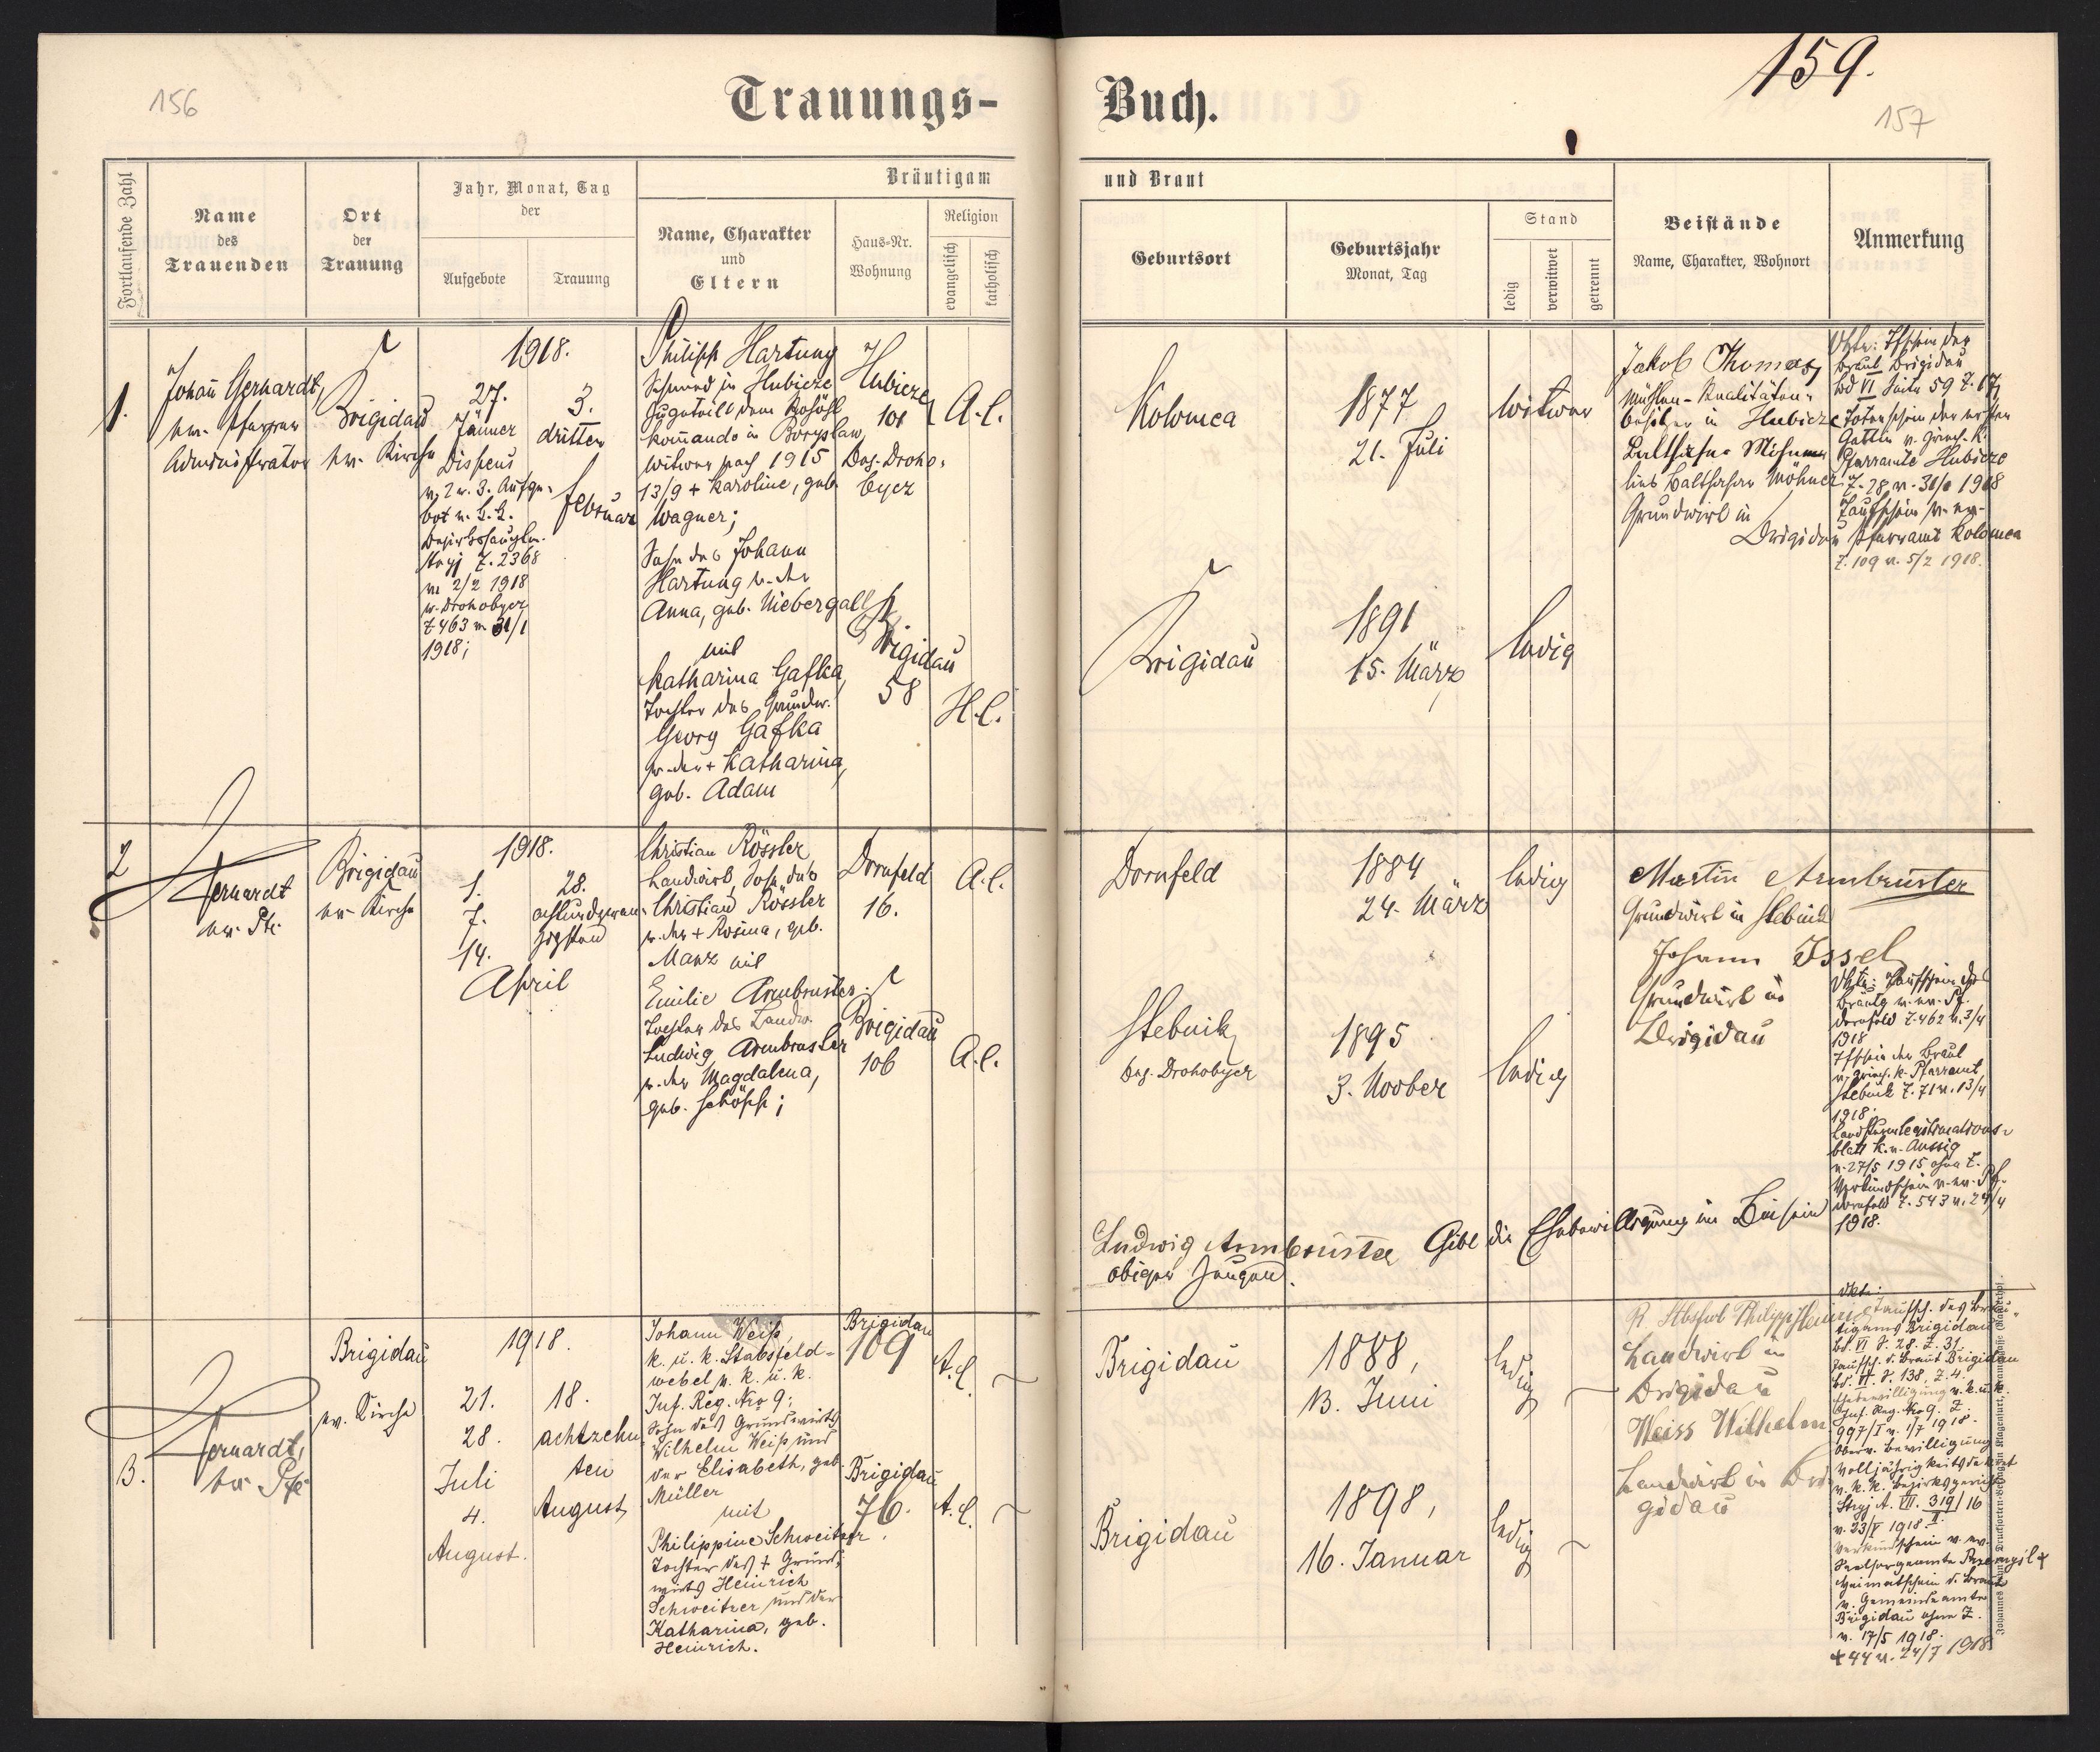 156
Trauungs-
Fortlaufende Zahl
Name
des
Trauenden
Ort
der
Trauung
Jahr, Monat, Tag
der
Aufgebote
Trauung
Bräutigam
Name, Charakter
und
Eltern
Haus-Nr.
Wohnung
Religion
evangelisch
katholisch
1.
Johañ Gerhardt,
ev. Pfarrer
Administrator
Brigidau
ev. Kirche
1918.
27.
Jänner
Dispens
v. 2 u. 3. Aufge-
bot v. k. k.
Stryj Z. 2368
v. 2/2 1918
u. Drohobycz
Z 463 v. 31/1
1918;
3.
dritter
Februar
Philipp Hartung
Schmied in Hubicze
zugeteilt dem
Kom̄ando in Boryslaw,
Witwer nach 1915
13/9 + Karoline, geb.
Wagner;
Sohn des Johann
Hartung u. der
Anna, geb. Niebergall
mit
Katharina Gafka,
Tochter des Grundw.
Georg Gafka
u. der + Katharina,
geb. Adam
Hubicze
101
Bez. Droho-
bycz
Brigidau
58
A. C.
H. C.
2
Gerhardt
ev. Pfr.
Brigidau
ev. Kirche
1918.
1.
7.
14.
April
28.
achtundzwan-
zigsten
Christian Rössler
Landwirt, Sohn des
Christian Rössler
u. der + Rosina, geb.
Manz mit
Emilie Armbruster,
Tochter des Landw.
Ludwig Armbruster
u. der Magdalena,
geb. Schöpp;
Dornfeld
16.
Brigidau
106
A. C.
A. C.
3.
Gerhardt,
ev. Pfr.
Brigidau
ev. Kirche
1918.
21.
28.
Juli
4.
August.
18.
achtzehn
ten
August
Johann Weiß,
k. u. k. Stabsfeld-
webel v. k. u. k.
Inf. Reg. Nro 9;
Sohn des Grundwirts
Wilhelm Weiß und
der Elisabeth, geb.
Müller
mit
Philippine Schweitzer,
Tochter des + Grund-
wirts Heinrich
Schweitzer und der
Katharina, geb.
Heinrich.
Brigidau
109
Brigidau
76.
A. C.
A. C.
159.
157
Buch.
und Braut
Geburtsort
Geburtsjahr
Monat, Tag
Stand
ledig
verwitwet
getrennt
Beistände
Name, Charakter, Wohnort
Anmerkung
Kolomea
1877
21. Juli
Witwer
Brigidau
1891
15. März
ledig
Jakob Thomas,
Mühlen-Realitäten-
besitzer in Hubicze
lies Balthasar Möhner
Grundwirt in
Brigidau
Braut Brigidau
Bd VI Seite 59 Z. 17,
Totenschein der ersten
Gattin v. griech. k.
Pfarramte Hubicze
Z. 28 v. 31/1 1918
Taufschein v. ev.
Pfarramt Kolomea
Z. 109 v. 5/2 1918.
Dornfeld
1884
24. März
ledig
Stebnik,
Bez. Drohobycz
1895
3. Novber
ledig
Martin Armbruster
Grundwirt in Stebnik
Johann Issel
Grundwirt in
Brigidau
Dornfeld Z. 462 v. 3/4
1918
Tfschein der Braut
v. griech. k. Pfarramt
Stebnik Z. 71 v. 13/4
1918.
Landsturmlegitimations-
blatt K. v. Aussig
v. 27/5 1915 ohne Z.
Verkündschein v. ev. Pf.
Dornfeld Z. 543 v. 24/4
1918.
Ludwig Armbruster Gibt die Ehebewilligung im Beisein
obiger Zeugen.
Brigidau
1888,
13. Juni
ledig
Brigidau
1898,
16. Januar
ledig
Landwirt in
Brigidau
Weiss Wilhelm
Landwirt in Bri
gidau
Taufsch. des Bräu-
tigams Brigidau
Bd. VI S. 28. Z. 31.
Taufsch. d. Braut Brigidau
Bd. VI. S. 138, Z. 4.
Ehebewilligung v. k. u. k.
Inf. Reg. Nro 9. Z.
997/I v. 1/7 1918.
Oberv. Bewilligung
v. k. k. Bezirksgericht
Stryj A. VII. 319/16
v. 23/V 1918.
Verkündschein v. ev.
Seelsorgeamte Przemyśl +
Heimatschein d. Braut
v. Gemeindeamte
Brigidau ohne Z.
v. 17/5 1918.
+ 44 v. 24/7 1918